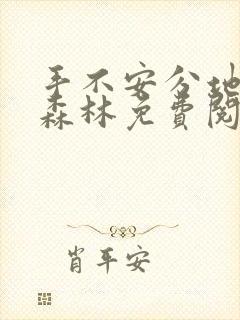 手不安分地
森林免费阅
肖平安